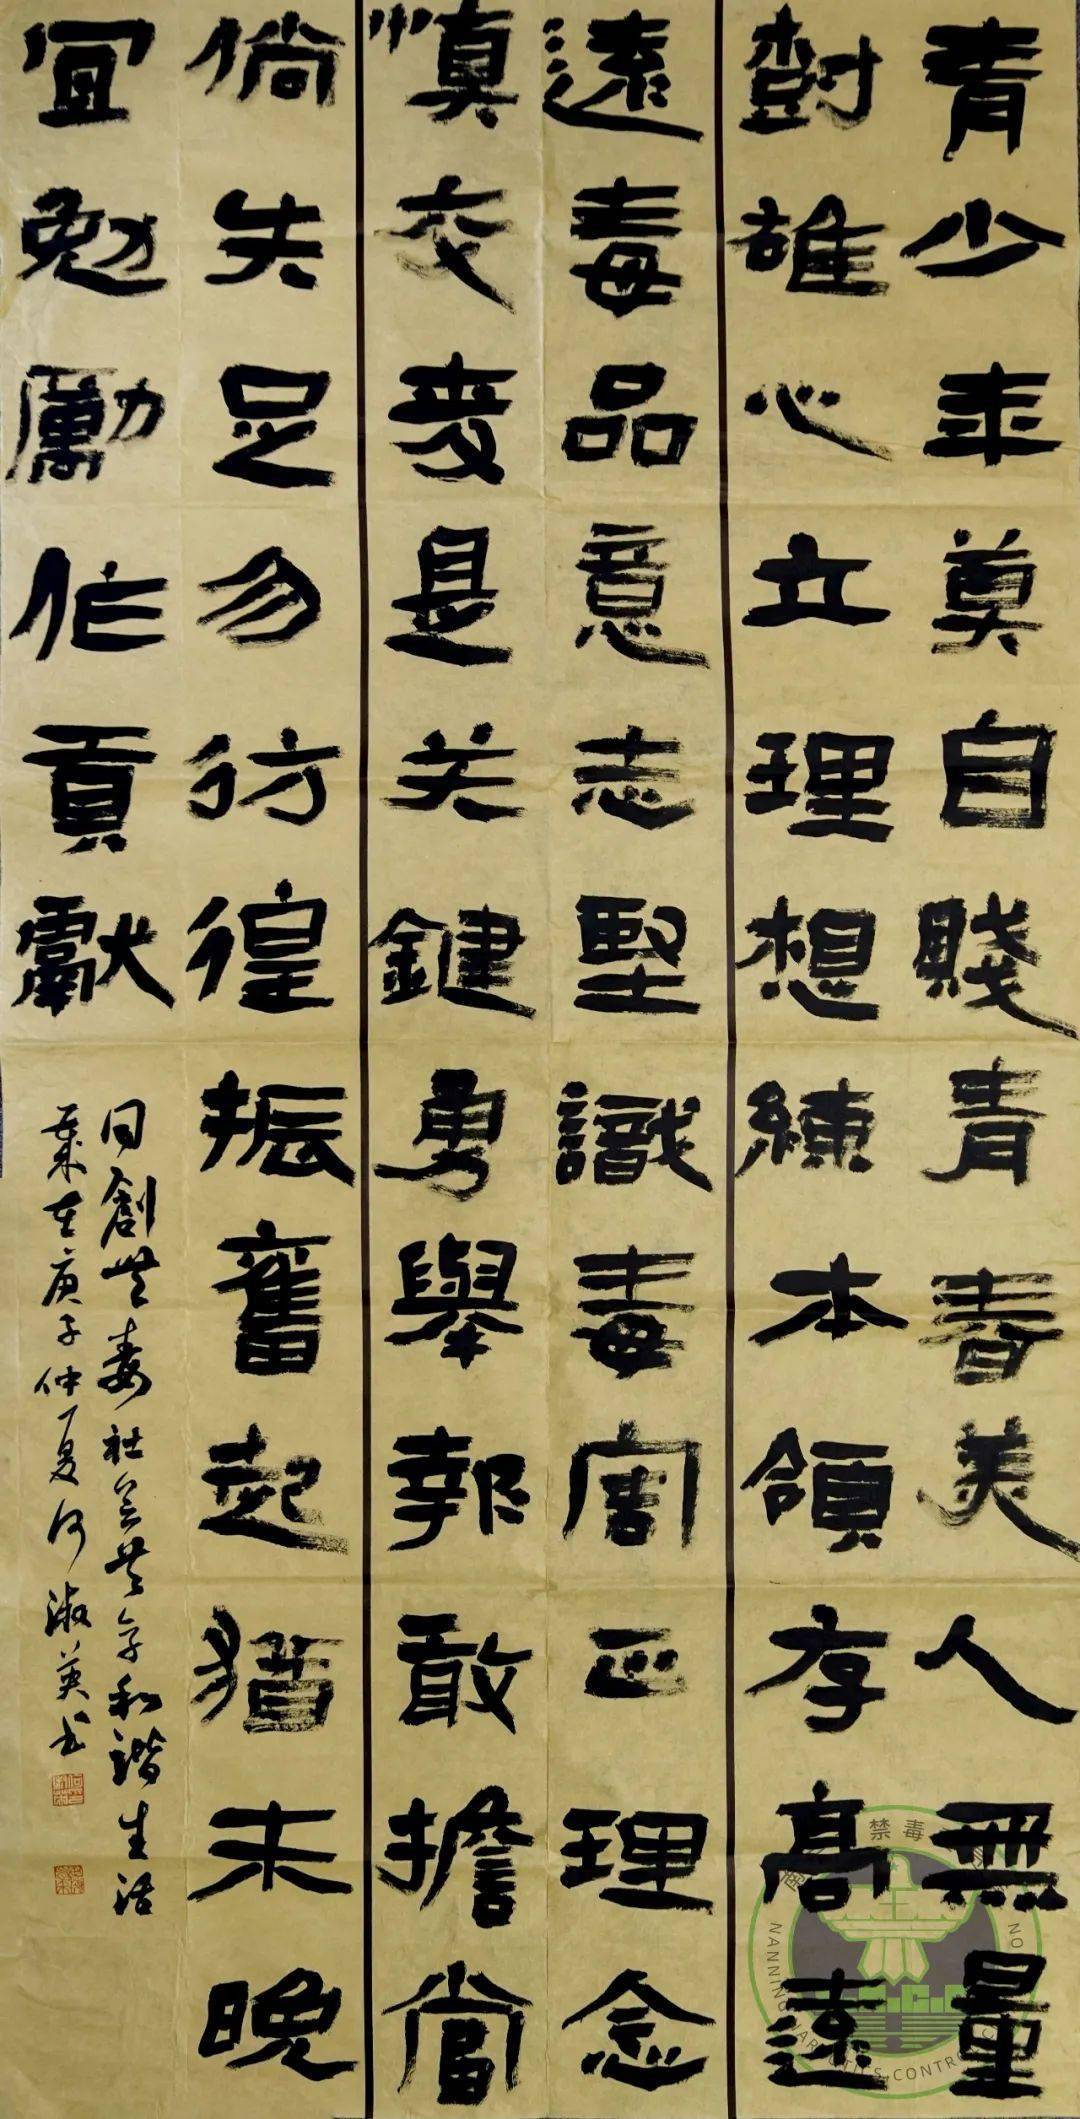 青少年莫自賤青春美人無量
樹雄心立理想練本領存高遠
遠毒品意志堅識毒害正理念
慎交友是关鍵勇舉報敢擔當
倘失足勿彷徨振奮起猶未晚
宜勉勵作貢獻
同創無毒社会共享和諧生活
歲在庚子仲夏何淑英书
禁毒
NANNING NARCOTICS CONTROL